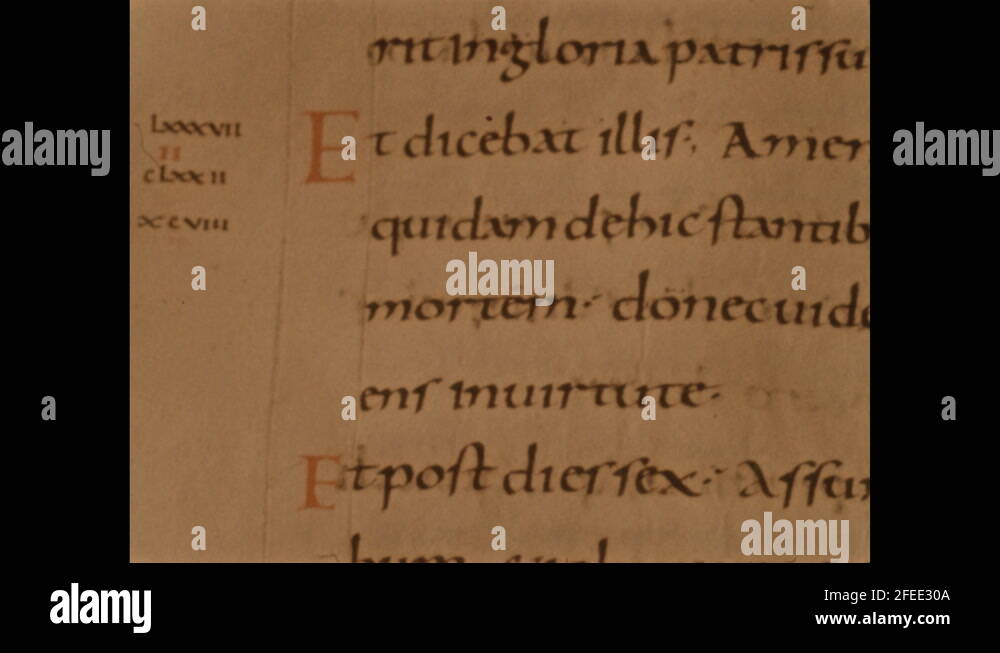 rit in gloria patris su
lxxxvii
Et dicebat illis; Amen
II
clxxii
quidam de hic stantib
xcviii
mortem· donec uide
ens in uirtute·
Et post dies sex·; Assu
alamy
alamy
alamy
alamy
alamy
Image ID: 2FEE30A
www.alamy.com